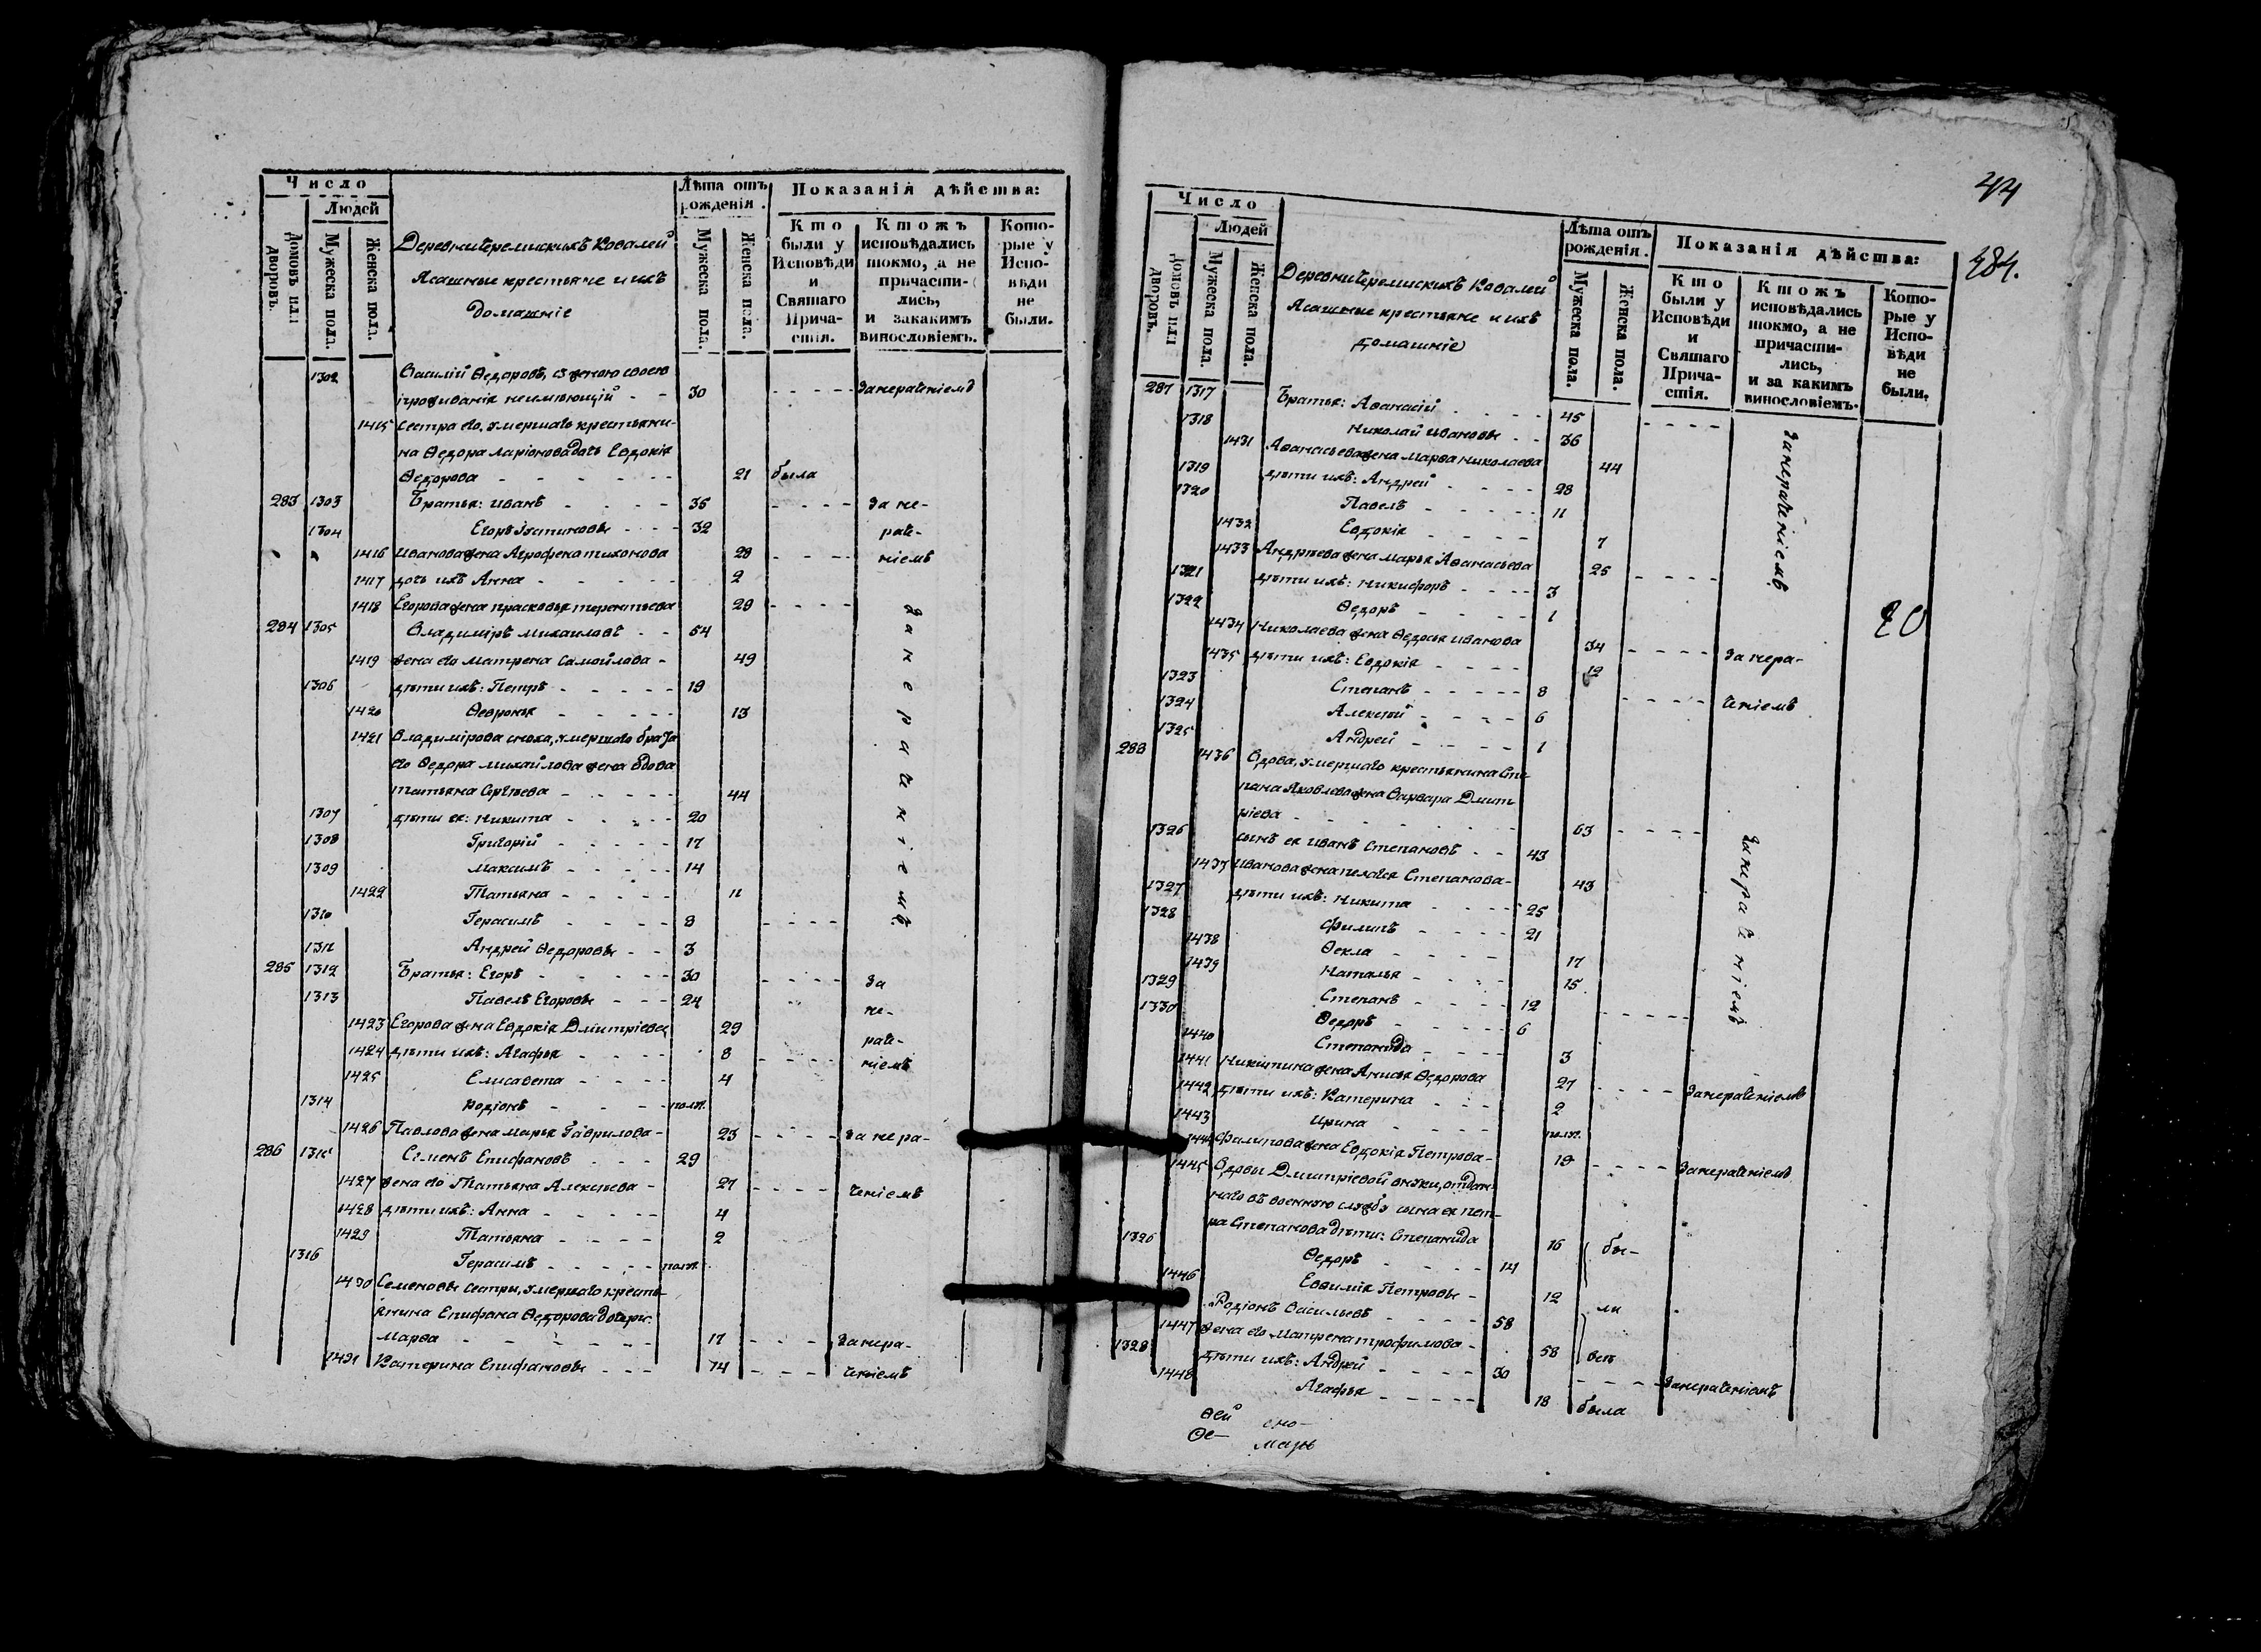 Число
Людей
Домовъ или дворовъ.
Мужеска пола.
Женска пола.
Деревни Черемискихъ Ковалей
Ясашные крестьяне и ихъ
домашніе
Лѣта отъ рожденія.
Мужеска пола.
Женска пола.
Показанія дѣйства:
Кто были у Исповѣди и Святаго Причастія.
Ктожъ исповѣдались токмо, а не причастились, и закакимъ винословіемъ.
Которые у Исповѣди не были.
1302 Василій Ѳедоровъ, съ женою своею
неимѣющій - - 30 - - - - занераченіемъ
1415 Сестра его, умершаго крестьяни-
на Ѳедора Ларіонова дочь Евдокія
Ѳедорова - - - - - - 21 была
283 1303 Братья: Иванъ - - - - 35 - - - - За не-
1304 Егоръ - - - 32 раче-
1416 Иванова жена Агрофена Тихонова 28 - - - - ніемъ
1417 дочь ихъ Анна - - - - - 2
1418 Егорова жена Прасковья Терентьева 29 - - - -
284 1305 Владиміръ Михайловъ - - 54 занераченіемъ
1419 жена его Матрена Самойлова - 49
1306 дѣти ихъ: Петръ - - - - - 19
1420 Ѳевронья - - - - - 13
1421 Владимірова сноха, умершаго брата
его Ѳедора Михайлова жена вдова
Татьяна Сергѣева - - - - - 44
1307 дѣти ея: Никита - - - - - 20
1308 Григорій - - - - - 17
1309 Максимъ - - - - - 14
1422 Татьяна - - - - - 11
1310 Герасимъ - - - - 8 - - - -
1311 Андрей Ѳедоровы - - 3
285 1312 Братья: Егоръ - - - - - 30 - - - - За
1313 Павелъ Егоровы - - - 24 не-
1423 Егорова жена Евдокія Дмитріева 29 раче-
1424 дѣти ихъ: Агафья - - - - 8 - - - - ніемъ
1425 Елисавета - - - - 4
1314 Родіонъ - - - - полг.
1426 Павлова жена Марья Гаврилова - 23 - - - - За нера-
286 1315 Семенъ Епифановъ - - - 29
1427 жена его Татьяна Алексѣева - 27 - - - - ченіемъ
1428 дѣти ихъ: Анна - - - - - 4
1429 Татьяна - - - - 2
1316 Герасимъ - - - - - полг.
1430 Семеновы сестры, умершаго кресть-
янина Епифана Ѳедорова дочери:
Марѳа - - - - - - 17 - - - - Занера-
1431 Катерина Епифановы - - - 14 - - - ченіемъ
44
284.
Число
Людей
Домовъ или дворовъ.
Мужеска пола.
Женска пола.
Деревни Черемискихъ Ковалей
Ясашные крестьяне и ихъ
домашніе
Лѣта отъ рожденія.
Мужеска пола.
Женска пола.
Показанія дѣйства:
Кто были у Исповѣди и Святаго Причастія.
Ктожъ исповѣдались токмо, а не причастились, и за какимъ винословіемъ.
Которые у Исповѣди не были.
287 1317 Братья: Аѳанасій - - - - 45 - - - - занераченіемъ
1318 Николай Ивановы - - 36
1431 Аѳанасьева жена Марѳа Николаева 44
1319 дѣти ихъ: Андрей - - - - 28
1320 Павелъ - - - - - 11
1432 Евдокія - - - - 7
1433 Андреева жена Марья Аѳанасьева 25 - - - -
1321 дѣти ихъ: Никифоръ - - - - 3
1322 Ѳедоръ - - - - - 1
1434 Николаева жена Ѳедосья Иванова 34 - - - - Занера-
1435 дѣти ихъ: Евдокія - - - - 12
1323 Степанъ - - - - - 8 - - - - ченіемъ
1324 Алексѣй - - - - 6
1325 Андрей - - - - 1
288 1436 Вдова, умершаго крестьянина Сте-
пана Яковлева жена Варвара Дмит-
ріева - - - - - - 63 - - - - занераченіемъ
1326 сынъ ея Иванъ Степановъ - - 43
1437 Иванова жена Пелагея Степанова - 43
1327 дѣти ихъ: Никита - - - - 25
1328 Филипъ - - - - 21
1438 Ѳекла - - - - 17
1439 Наталья - - - - 15
1329 Степанъ - - - - 12
1330 Ѳедоръ - - - - - 6 - - - - -
1440 Степанида - - - - 3
1441 Никитина жена Анисья Ѳедорова 27 - - - - Занераченіемъ
1442 дѣти ихъ: Катерина - - - 2
1443 Ирина - - - - полг.
1444 Филипова жена Евдокія Петрова - 19 - - - - Занераченіемъ
1445 Вдовы Дмитріевой внуки, отдан-
наго въ военную службу сына ея Пет-
ра Степанова дѣти: Степанида 16 бы-
1326 Ѳедоръ - - - - 14
1446 Евѳимія Петровы - 12 ли
Родіонъ Васильевъ - - - - 58
1447 жена его Матрена Трофимова - 58 всѣ
1328 дѣти ихъ: Андрей - - - - 30 - - - - Занераченіемъ
1448 Агафья - - - - - 18 была